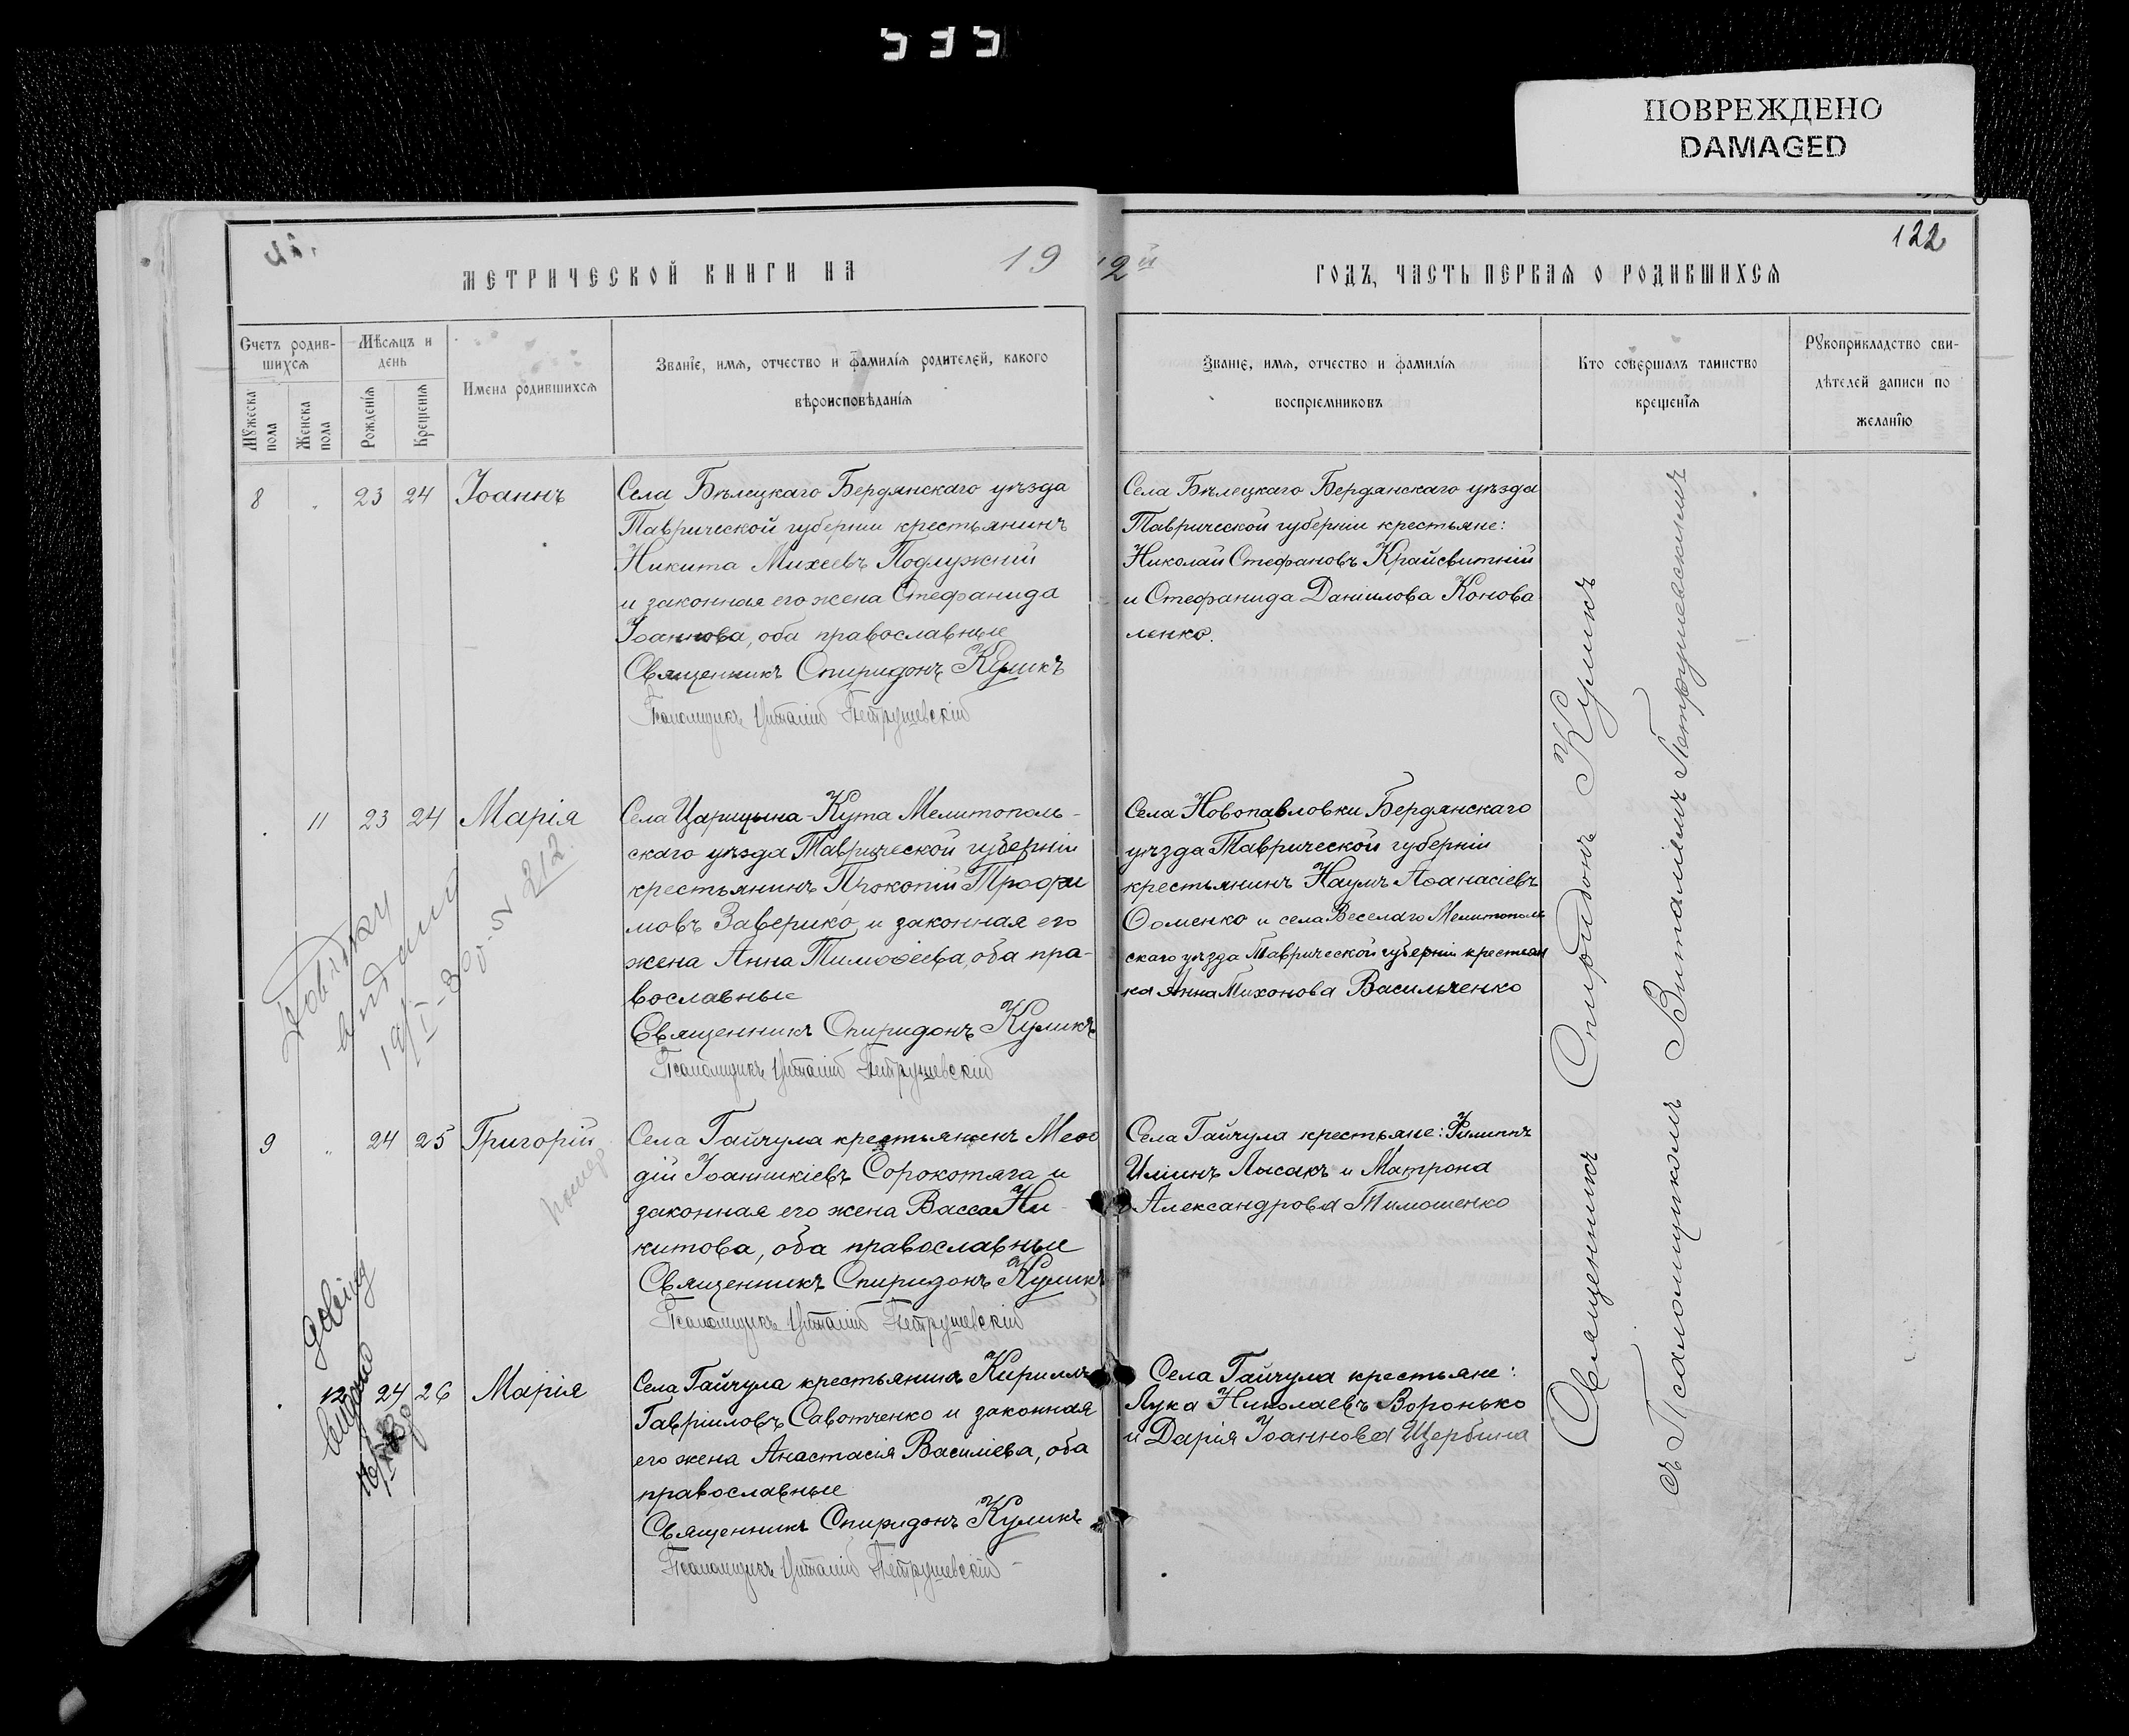 ПОВРЕЖДЕНО
DAMAGED
122
МЕТРИЧЕСКОЙ КНИГИ НА 1912й ГОДЪ, ЧАСТЬ ПЕРВАЯ О РОДИВШИХСЯ
Счетъ родившихся
Мужеска пола
Женска пола
Мѣсяцъ и день
Рожденія
Крещенія
Имена родившихся
Званіе, имя, отчество и фамилія родителей, какого
вѣроисповѣданія
Званіе, имя, отчество и фамилія
воспріемниковъ
Кто совершалъ таинство
крещенія
Рукоприкладство сви-
дѣтелей записи по
желанію
8 23 24 Іоаннъ
Села Бѣлецкаго Бердянскаго уѣзда
Таврической губерніи крестьянинъ
Никита Михеевъ Подлужній
и законная его жена Стефанида
Іоаннова, оба православные
Священникъ Спиридонъ Куликъ
Псаломщикъ Виталій Петрушевскій
Села Бѣлецкаго Бердянскаго уѣзда
Таврической губерніи крестьяне:
Николай Стефановъ Крайсвитній
и Стефанида Даніилова Конова
ленко.
11 23 24 Марія
Села Царицына-Кута Мелитополь-
скаго уѣзда Таврической губерніи
крестьянинъ Прокопій Трофи
мовъ Заверико и законная его
жена Анна Тимоѳеева, оба пра-
вославные
Священникъ Спиридонъ Куликъ
Псаломщикъ Виталій Петрушевскій
Села Новопавловки Бердянскаго
уѣзда Таврической губерніи
крестьянинъ Наумъ Аѳанасіевъ
Ѳоменко и села Веселаго Мелитополь
скаго уѣзда Таврической губерніи крестьян
ка Анна Тихонова Васильченко
212
9 24 25 Григорій
Села Гайчула крестьянинъ Меѳо
дій Іоанникіевъ Сорокотяга и
законная его жена Васса Ни-
китова, оба православные
Священникъ Спиридонъ Куликъ
Псаломщикъ Виталій Петрушевскій
Села Гайчула крестьяне: Филиппъ
Иліинъ Лысакъ и Матрона
Александрова Тимошенко
12 24 26 Марія
Села Гайчула крестьянинъ Кириллъ
Гавріиловъ Савотченко и законная
его жена Анастасія Василіева, оба
православные
Священникъ Спиридонъ Куликъ
Псаломщикъ Виталій Петрушевскій
Села Гайчула крестьяне:
Лука Николаевъ Воронько
и Дарія Іоаннова Щербина
Священникъ Спиридонъ Куликъ
съ Псаломщикомъ Виталіемъ Петрушевскимъ